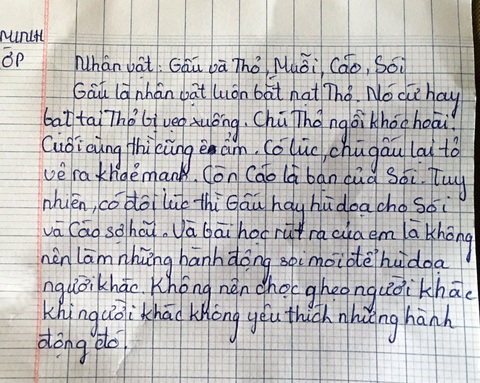 MINH
ỚP
Nhân vật: Gấu và Thỏ, Muỗi, Cáo, Sói
Gấu là nhân vật luôn bắt nạt Thỏ. Nó cứ hay
bạt tai Thỏ bị vẹo xuống. Chú Thỏ ngồi khóc hoài.
Cuối cùng thì cũng êm. Có lúc, chú gấu lại tỏ
vẻ ra khỏe mạnh. Còn Cáo là bạn của Sói. Tuy
nhiên, có đôi lúc thì Gấu hay hù dọa cho Sói
và Cáo sợ hãi. Và bài học rút ra của em là không
nên làm những hành động soi mói để hù dọa
người khác. Không nên chọc ghẹo người khác
khi người khác không yêu thích những hành
động đó.